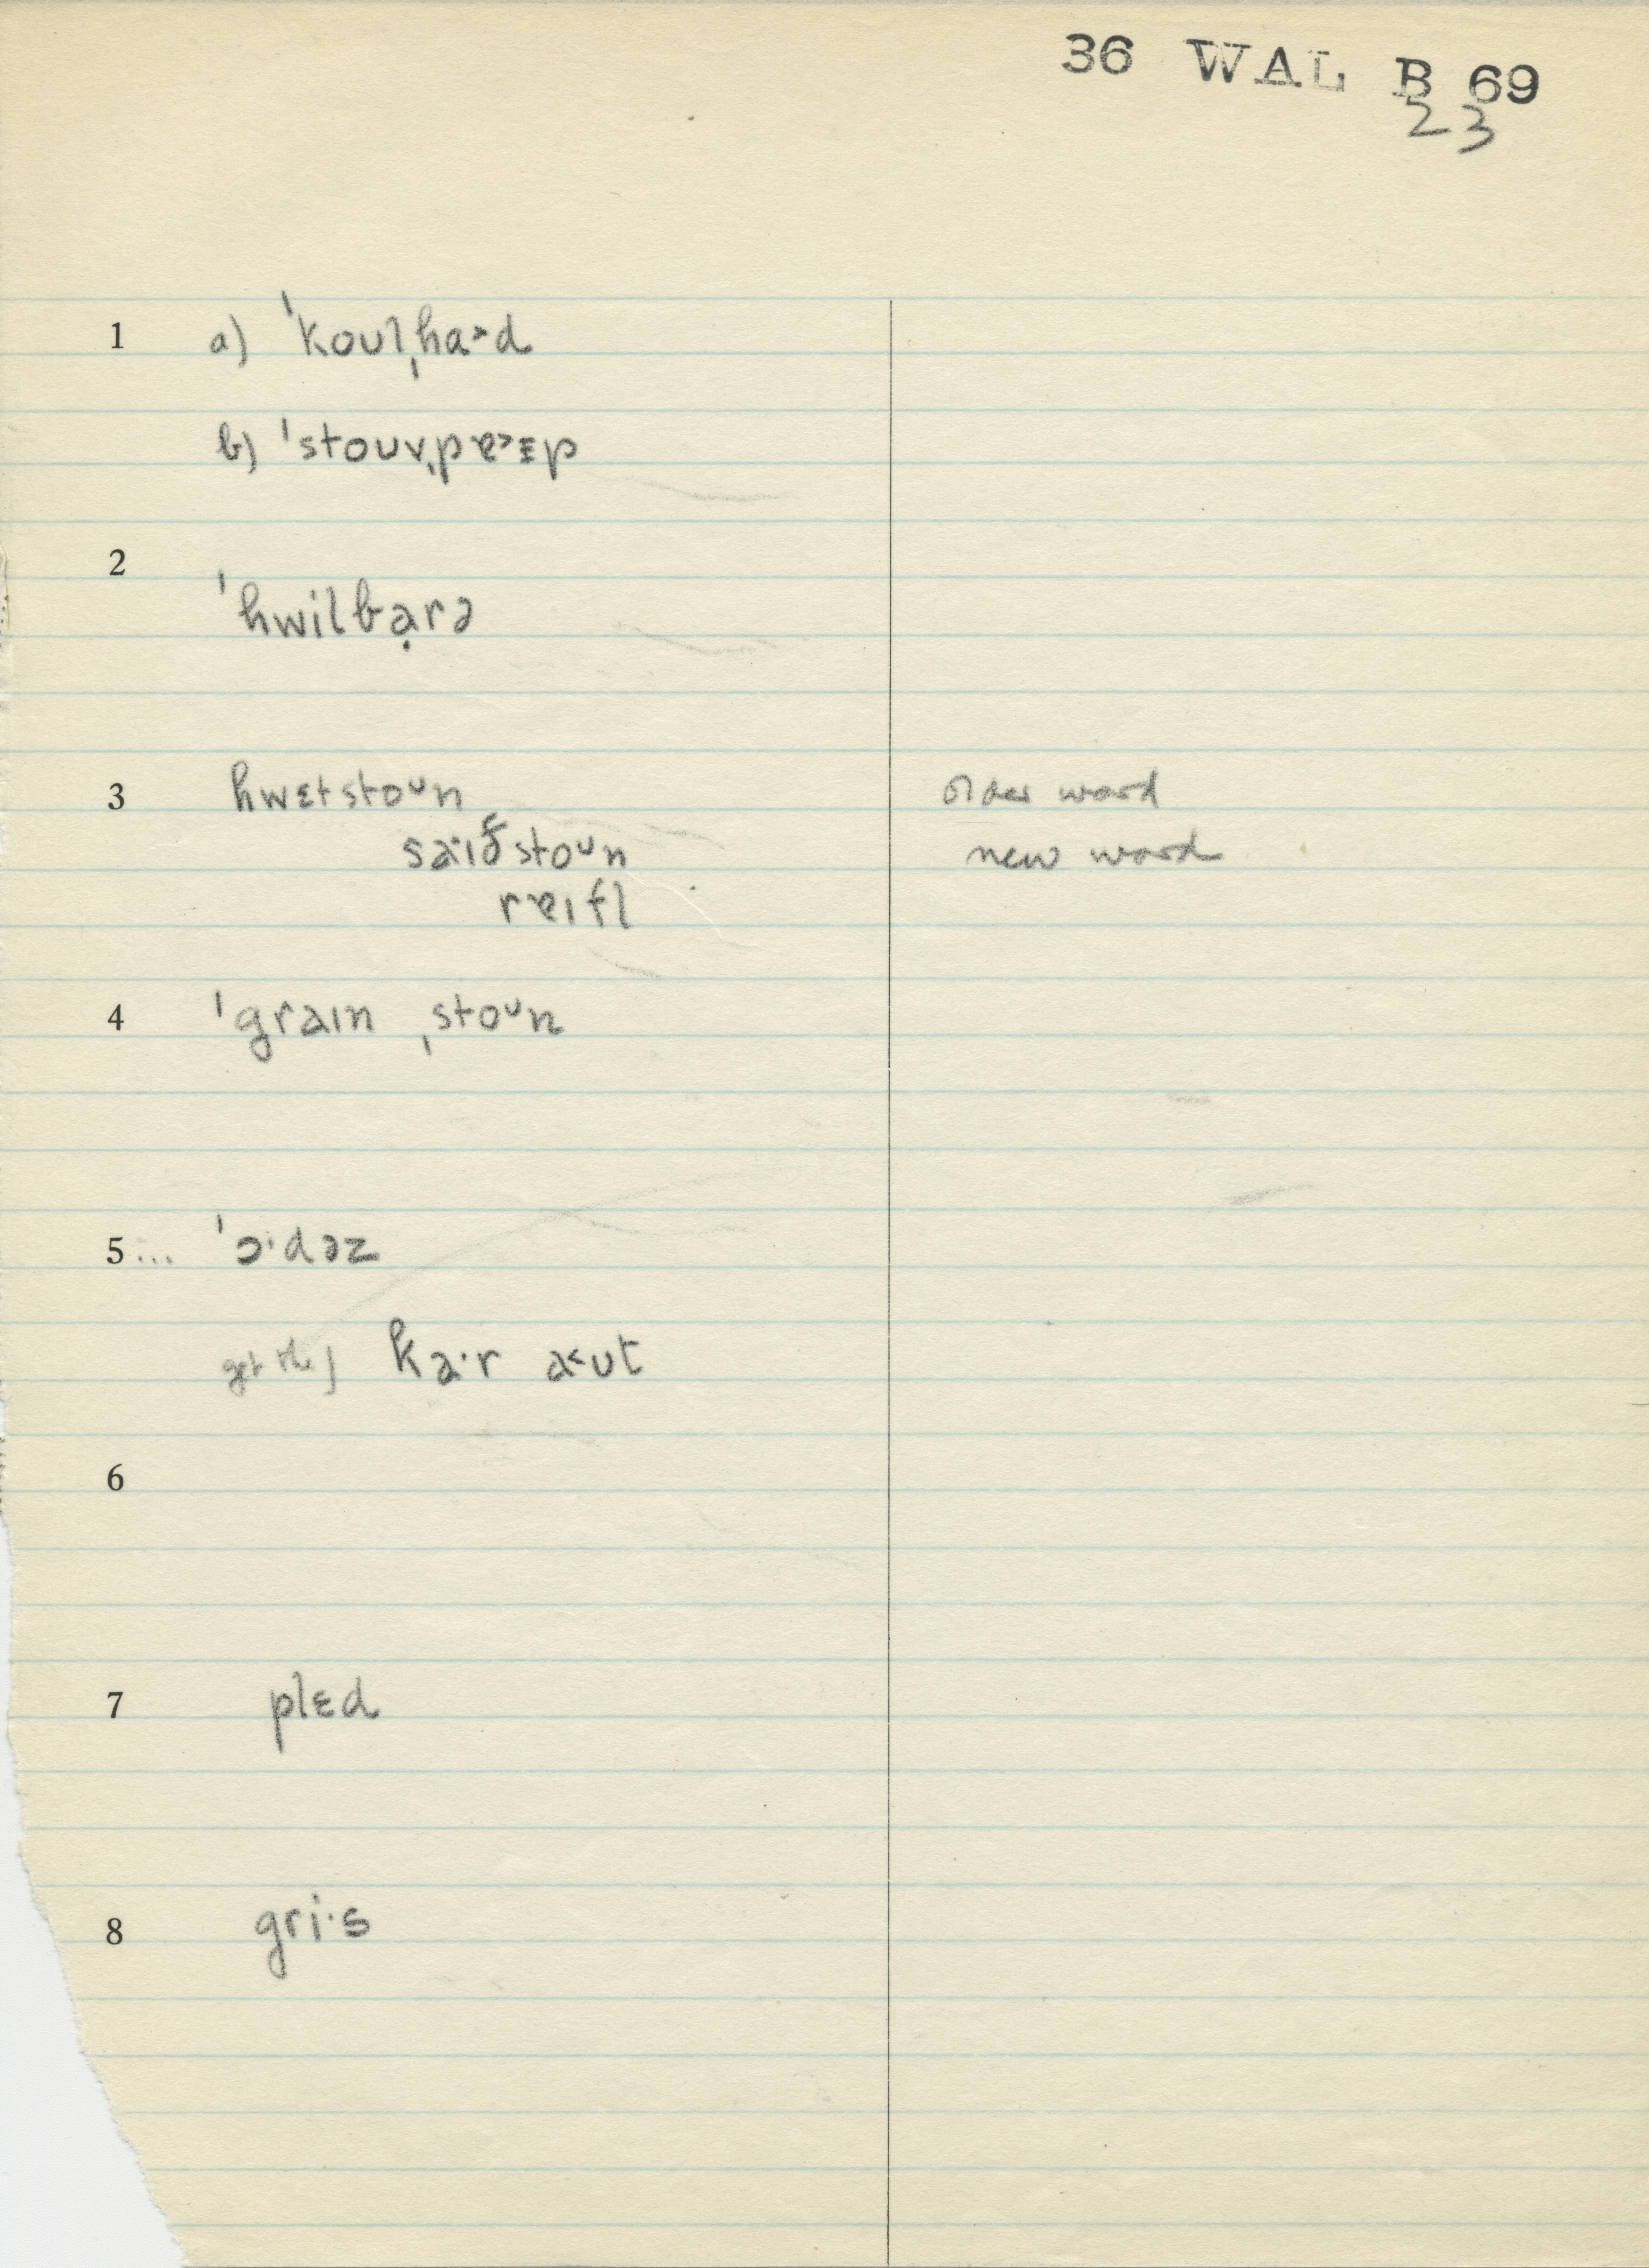 36 WAL B 69
23
1 a) ˈkoʊlˌha˃d
b) ˈstoʊvˌpɐ˃ɪp
2 ˈhwilbạrə
3 hwɛtstoᴜn older word
saˑɪðstoᴜn new word
rɐɪfl
4 ˈgraɪn ˌstoᴜn
5... ˈɔˑdəz
get the] kaˑr a˂ʊt
6
7 plɛd
8 griˑs